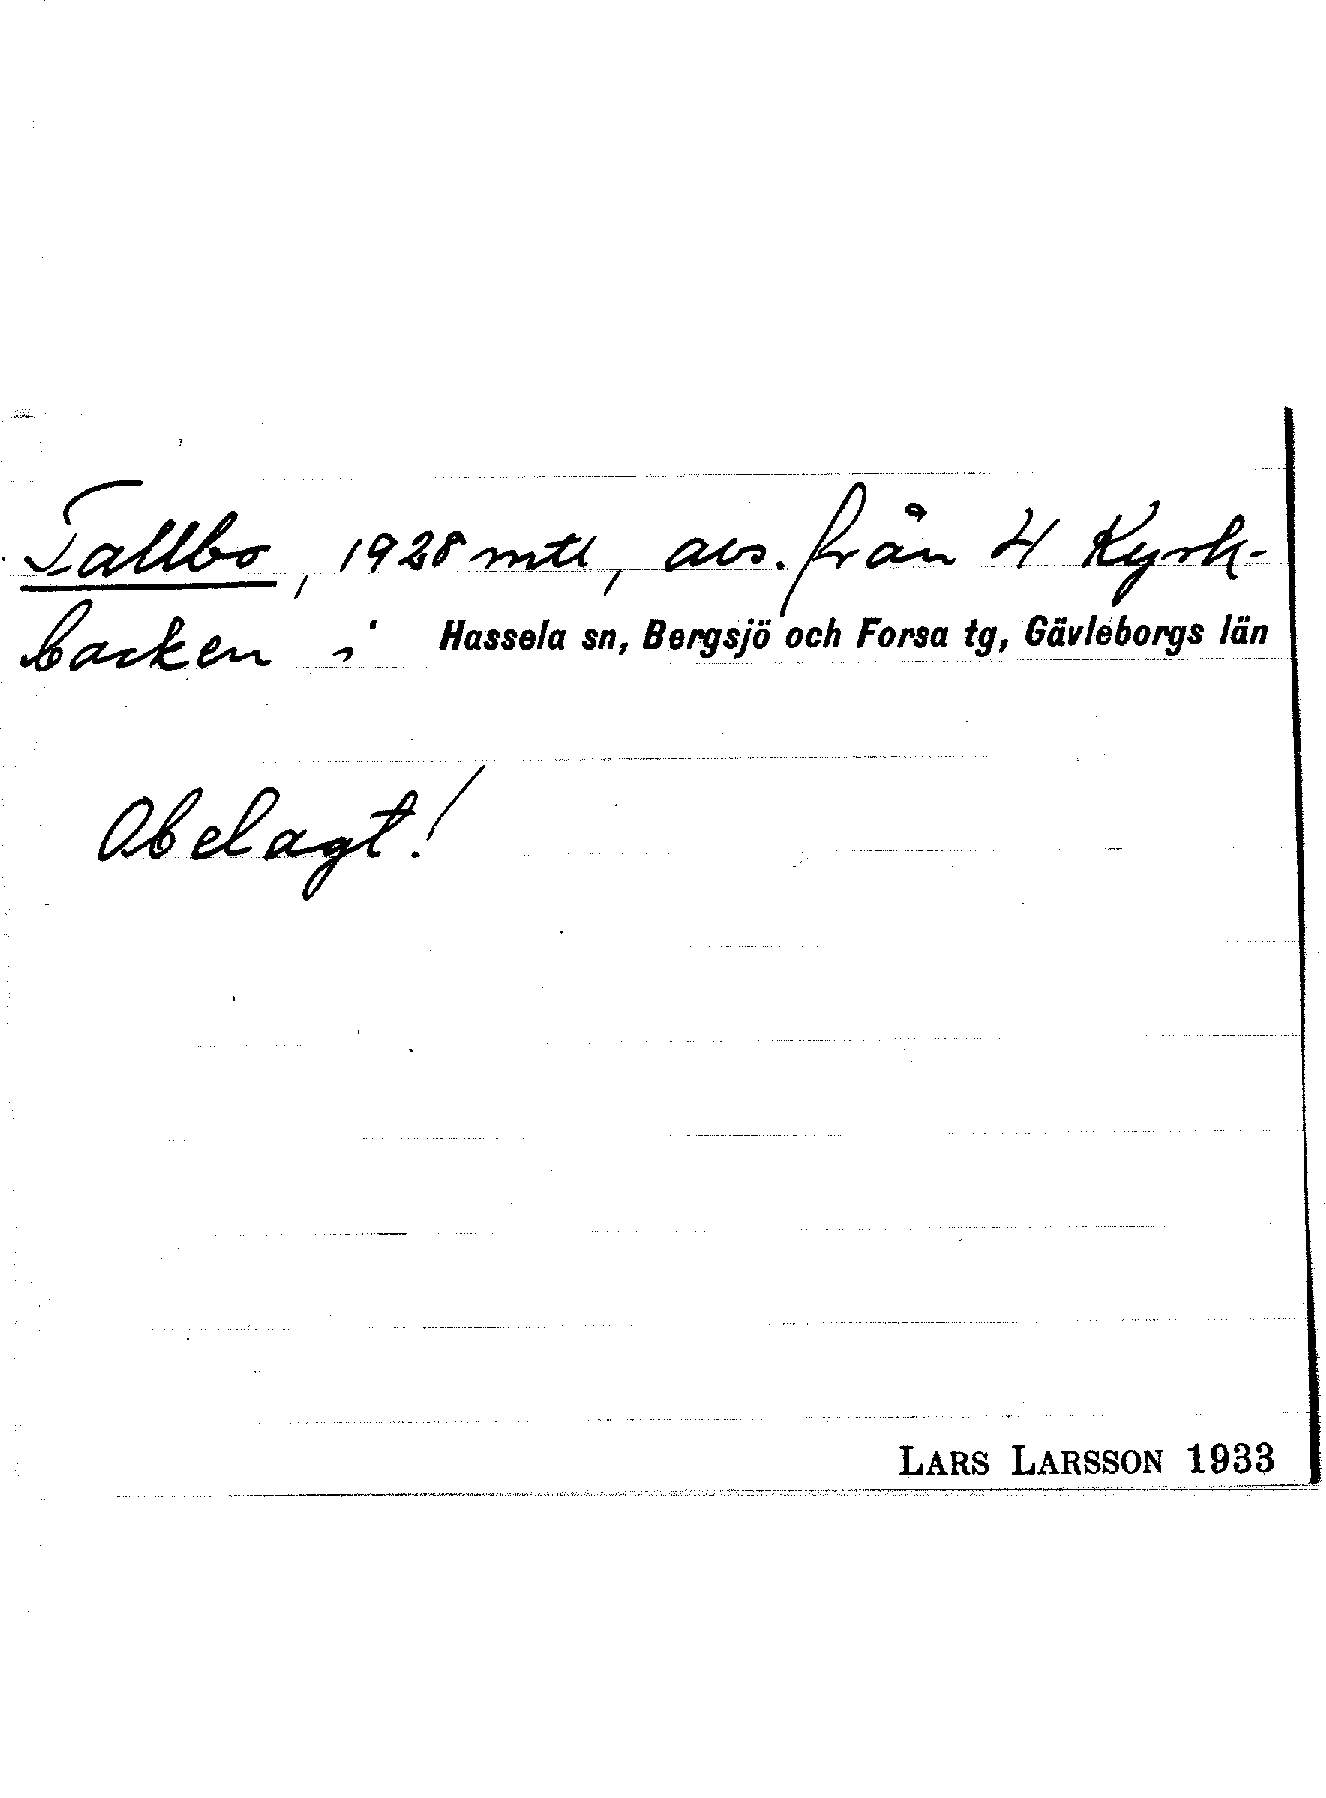 Tallbo, 1928 mtl, avs. från 4 Kyrk-
backen i Hassela sn, Bergsjö och Forsa tg, Gävleborgs län
Obelagt!
LARS LARSSON 1933